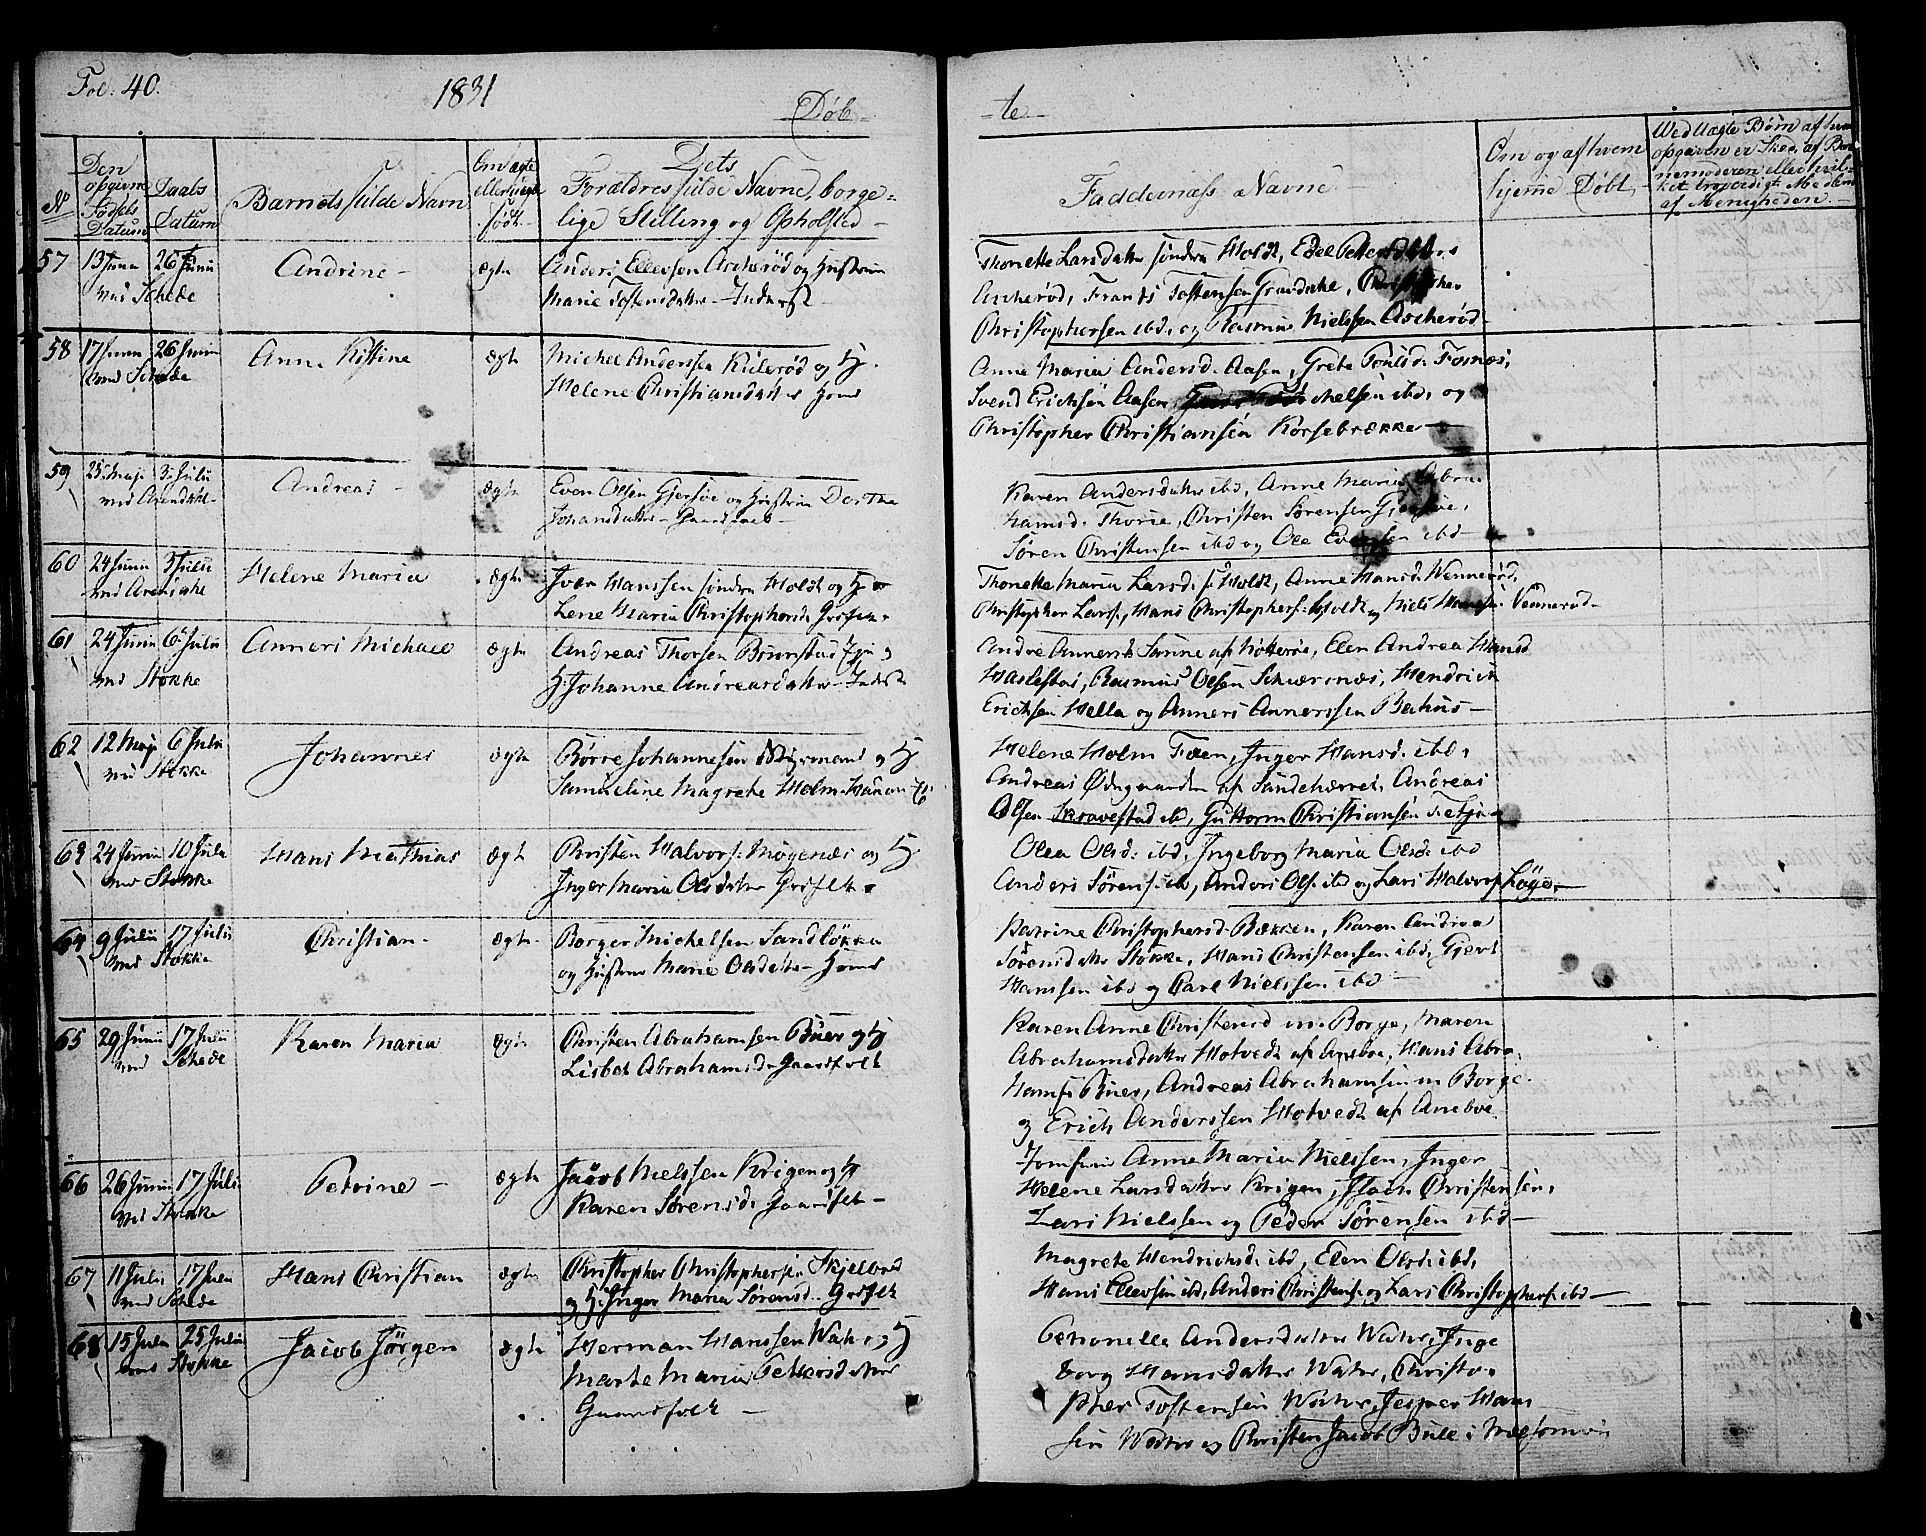 Fol. 40.
1831
Døb-
-te-
No
Den opgivne Fødsels Datum
Daabs Datum
Barnets fulde Navn
Om ægte eller uægte født
Dets
Forældres fulde Navne, borge-
lige Stilling og Opholsted
Faddernes Navne
Om og af hvem
hjemme Døbt
Ved Uægte Børn af hvem
opgaven er skeet, af Bar
nemoderen eller hvil-
ket troværdigt Medlem
af Menigheden
57 13 Juni 26 Juni
ved Schede
Andrine
ægte
Anders Ellevsen Ascherød og Hustrue
Marie Tostensdatter Inderst
Thonette Larsdatter søndre Holdt, Edel Pettersdatter
Ascherød, Frants Tostensen Gravdahl, Christopher
Christophersen ibd. og Rasmus Nielssen Ascherød
58 17 Juni 26 Juni
ved Schede
Anne Kistine
ægte
Michel Anderssen Kulerød og H.
Helene Christiansdatter
Anne Maria Andersd. Aasen, Grete Poulsd. Fosnæs,
Svend Erichsen Aasen
Michelsen ibd. og
Christopher Christiansen Korsebrække
59 25 Maji 3 Julii
ved Arendahl
Andreas
ægte
Even Olsen Gjersøe og Hustrue Dorthe
Johansdatter
Karen Andersdatter ibd, Anne Maria Abra
hamsd. Thorie, Christen Sørensen Gjersøe,
Søren Christensen ibd og Ole Evensen ibd
60 24 Juni 3 Julii
ved Arendahl
Helene Maria
ægte
Iver Hanssen søndre Holdt og H.
Lene Maria Christophersd. Grdfolk.
Thonette Maria Larsd. s. Holdt, Anne Hansd. Vennerød,
Christopher Larss., Hans Christophers. Holdt og Niels Hansen Vennerød
61 24 Junii 6 Julii
ved Stokke
Anners Michael
ægte
Andreas Thorsen Brunstad og
H. Johanne Andreasdatter Inderst
Andre Anners Sønne af Nøtterøe, Elen Andrea Hansd
Haslestad, Rasmus Olsen Skjærsnæs, Hendrich
Erichsen Hella og Anners Annerssen Bahus
62 12 Maji 6 Julii
ved Stokke
Johannes
ægte
Børre Johannesen Styrmand og H.
Samueline Magrete Holm
Helene Holm Foen, Inger Hansd. ibd,
Andreas Ødegaarden af Sandeherret, Andreas
Olsen Skravestad ibd, Guttorm Christiansen
63 24 Junii 10 Julii
ved Stokke
Hans Mathias
ægte
Christen Halvors. Mågenæs og H.
Inger Maria Olsdatter Grdfolk
Olea Olsd. ibd, Ingeborg Maria Olsd. ibd
Anders Sørens. ibd, Anders Ols. ibd og Lars Halvors Løge
64 9 Julii 17 Julii
ved Stokke
Christian
ægte
Borger Michelsen Sandløkka
og Hustrue Marie Olsdatter
Katrine Christophersd. Bækken, Karen Andrea
Sørensdatter Stokke, Hans Christensen ibd, Gjert
Hanssen ibd og Carl Nielssen ibd
65 29 Junii 17 Julii
ved Schede
Karen Maria
ægte
Christen Abrahamsen Buer og H
Lisbet Abrahamsd. Gaardfolk
Karen Anne Christensd m. Borge, Maren
Abrahamsdatter Hotvedt af Aneboe, Hans Abra
hams. Buer, Andreas Abrahamsen m Borge
og Erich Anderssen Hotvedt af Aneboe
66 26 Junii 17 Julii
ved Stokke
Petrine
ægte
Jacob Nielssen Krigen og H
Karen Sørensd. Gaardfolk
Jomfrue Anne Maria Nielssen, Inger
Helene Larsdatter Krigen, Christensen,
Lars Nielssen og Peder Sørensen ibd
67 11 Julii 17 Julii
ved Schede
Hans Christian
ægte
Christopher Christophersen Skjelbred
og H. Inger Maria Sørensd. Grdfolk
Magrete Hendrichsd. ibd, Elen Olsd. ibd,
Hans Ellevsen ibd, Anders Christens. og Lars Christophers. ibd
68 15 Julii 25 Julii
ved Stokke
Jacob Jørgen
ægte
Herman Hanssen Watne og H
Marte Maria Pettersdatter
Gaardfolk
Petronella Andersdatter Watne, Inge
borg Hansdatter Watne, Christo-
pher Tostensen Watne, Jesper Han
sen Watne og Christen Jacob Bull i